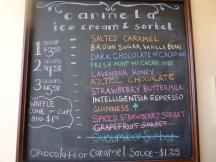 carmela
ice cream & sorbet
1 scoop $3.50
2 scoops $4.50
3 scoops $5.50
WAFFLE CONE or cup ADD $1.00
SALTED CARAMEL
BROWN SUGAR VANILLA BEAN
DARK CHOCOLATE w/ CACAO NIB
FRESH MINT w/ CACAO NIBS
LAVENDER HONEY
AZTEC CHOCOLATE
STRAWBERRY BUTTERMILK
INTELLIGENTSIA ESPRESSO
GUINNESS
SPICED STRAWBERRY SORBET
GRAPEFRUIT SORBET
CUCUMBER SORBET
Chocolate or Caramel Sauce - $1.25